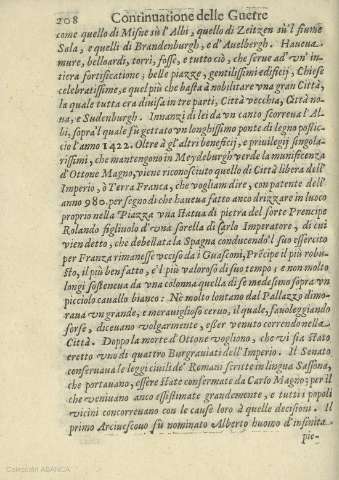 208 Continuatione delle Guerre
come quello di Misne sù l'Albi, quello di Zeitzen sù'l fiume
Sala, e quelli di Brandenburgh, e d'Auelbergh. Haueua
mure, belloardi, torri, fosse, e tutto ciò, che serue ad'vn'in
tiera fortificatione; belle piazze, gentilissimi edificij, Chiese
celebratissime, e quel più che basta à nobilitare vna gran Città,
la quale tutta era diuisa in tre parti, Città vecchia, Città no-
ua, e Sudenburgh. Innanzi di lei da vn canto scorreua l'Al
bi, sopra'l quale fù gettato vn longhissimo ponte di legno possic-
cio l'anno 1422. Oltre à gl'altri beneficij, e priuilegij singola-
rissimi, che mantengono in Meydeburgh verde la munificenza
d'Ottone Magno, viene riconosciuto quello di Città libera dell'
Imperio, ò Terra Franca, che vogliam dire, con patente dell'
anno 980. per segno di che haueua fatto anco drizzare in luoco
proprio nella Piazza vna statua di pietra del forte Prencipe
Rolando figliuolo d'vna sorella di Carlo Imperatore, di cui
vien detto, che debellata la Spagna conducendo'l suo essercito
per Franza rimanesse vcciso da i Guasconi, Prēcipe il più robu-
sto, il più ben fatto, e'l più valoroso di suo tempo; e non molto
longi sosteneua da vna colonna quella di se medesmo sopra vn
picciolo cauallo bianco: Nè molto lontano dal Pallazzo dimo-
raua vn grande, e merauiglioso ceruo, il quale, fauoleggiando
forse, diceuano volgarmente, esser venuto correndo nella
Città. Doppo la morte d'Ottone vogliono, che vi sia stato
eretto vno di quattro Burgrauiati dell'Imperio. Il Senato
conseruaua le leggi ciuili de' Romani scritte in lingua Sassona,
che portauano, essere state confermate da Carlo Magno; per il
che veniuano anco essistimate grandemente, e tutti i popoli
vicini concorreuano con le cause loro à quelle decisioni. Il
primo Arciuescouo fù nominato Alberto huomo d'infinita
pie-
Colección ABANCA